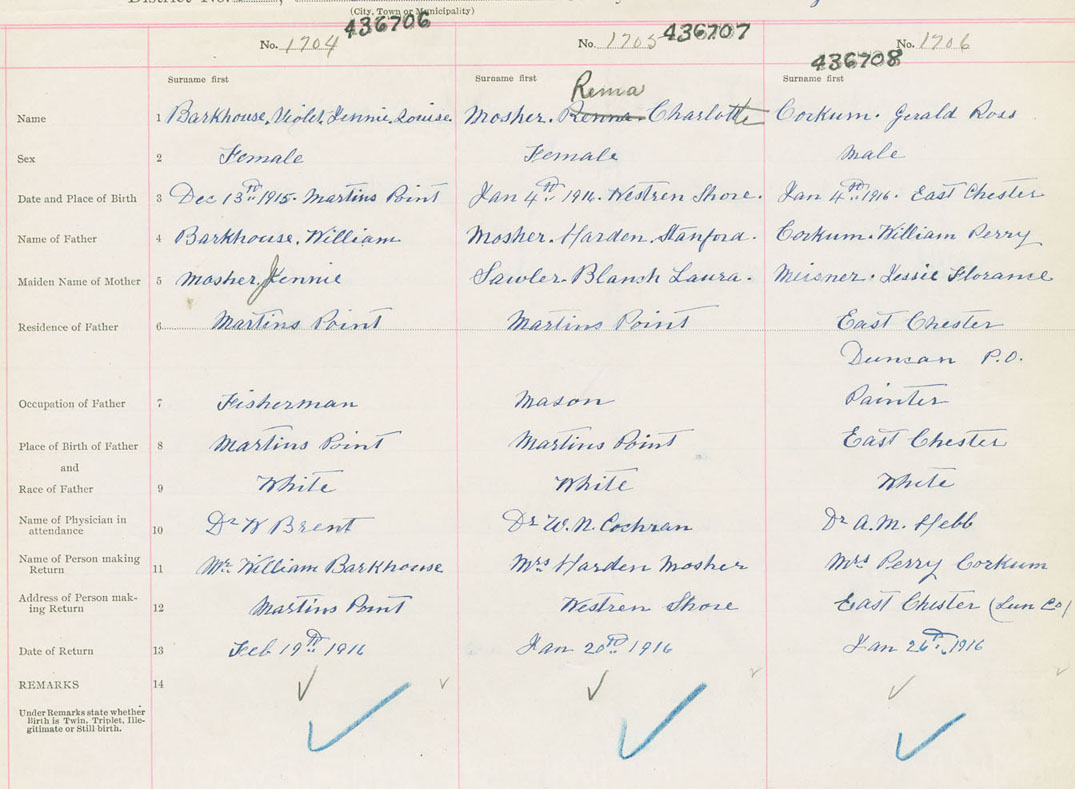 District No.
(City, Town or Municipality)
No. 1704 436706 No. 1705 436707 No. 1706 436708
Surname first Surname first Surname first
Rema
Name 1 Barkhouse, Violet Jennie Louise Mosher. Renna. Charlotte Corkum. Gerald Ross
Sex 2 Female Female Male
Date and Place of Birth 3 Dec 13th 1915. Martins Point Jan 4th 1916. Westren Shore. Jan 4th 1916. East Chester
Name of Father 4 Barkhouse, William Mosher. Harden Stanford. Corkum. William Perry
Maiden Name of Mother 5 Mosher Jennie Sawler. Blanch Laura. Meisner. Jessie Florance
Residence of Father 6 Martins Point Martins Point East Chester
Duncan P.O.
Occupation of Father 7 Fisherman Mason Painter
Place of Birth of Father 8 Martins Point Martins Point East Chester
and
Race of Father 9 White White White
Name of Physician in
attendance 10 Dr W Brent Dr W. N. Cochran Dr A. M. Hebb
Name of Person making
Return 11 Mr. William Barkhouse Mrs Harden Mosher Mrs Perry Corkum
Address of Person mak-
ing Return 12 Martins Point Westren Shore East Chester (Lun Co)
Date of Return 13 Feb 19th 1916 Jan 20th 1916 Jan 26th 1916
REMARKS 14
Under Remarks state whether
Birth is Twin, Triplet, Ille-
gitimate or Still birth.